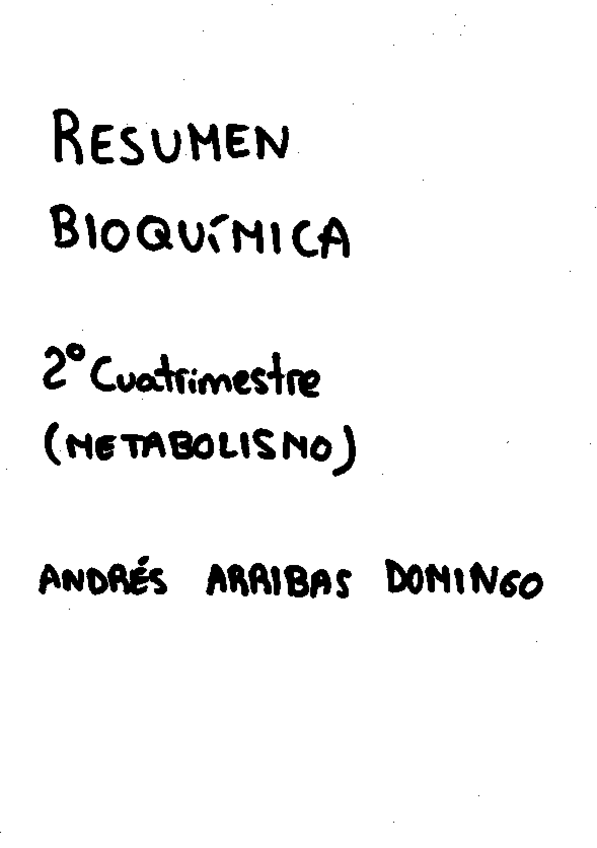 RESUMEN
BIOQUÍMICA
2º Cuatrimestre
(METABOLISMO)
ANDRÉS ARRIBAS DOMINGO